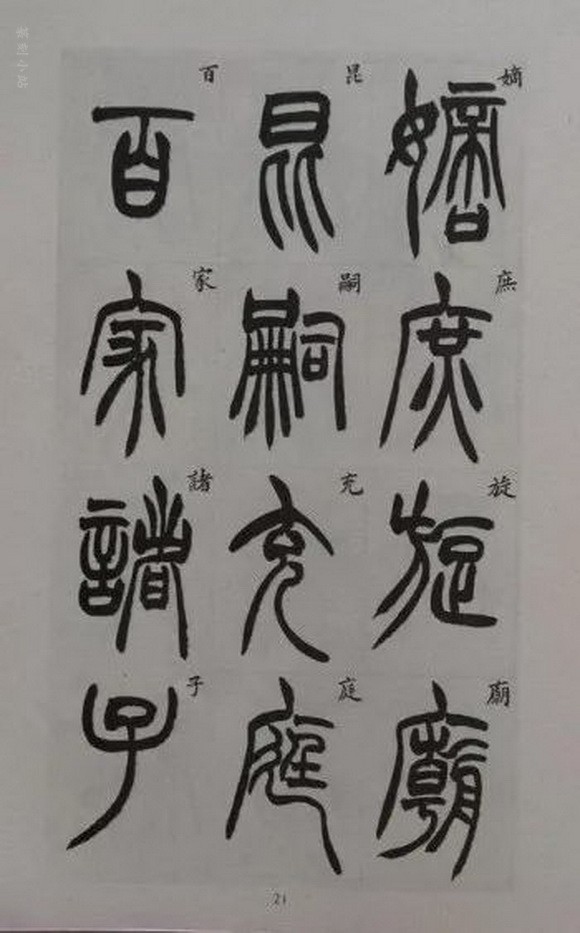 嫡庶旋廟
昆嗣充庭
百家諸子
21